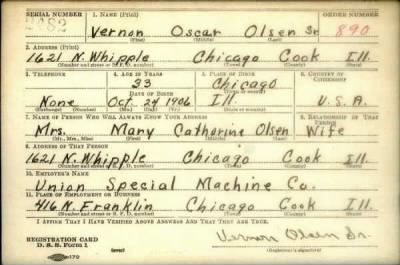 SERIAL NUMBER 1. NAME (Print) ORDER NUMBER
Vernon Oscar Olsen Sr 890
2. ADDRESS (Print)
1621 N. Whipple Chicago Cook Ill.
(Number and street or R. F. D. number) (Town) (County) (State)
3. TELEPHONE 4. AGE IN YEARS 5. PLACE OF BIRTH 6. COUNTRY OF CITIZENSHIP
33 Chicago
DATE OF BIRTH
None Oct. 24 1906 Ill. U.S.A.
(Mo.) (Day) (Yr.)
7. NAME OF PERSON WHO WILL ALWAYS KNOW YOUR ADDRESS 8. RELATIONSHIP OF THAT PERSON
Mrs. Mary Catharine Olsen Wife
(Mr., Mrs., Miss) (First) (Middle) (Last)
9. ADDRESS OF THAT PERSON
1621 N. Whipple Chicago Cook Ill.
(Number and street or R. F. D. number) (Town) (County) (State)
10. EMPLOYER'S NAME
Union Special Machine Co.
11. PLACE OF EMPLOYMENT OR BUSINESS
416 N. Franklin Chicago Cook Ill
(Number and street or R. F. D. number) (Town) (County) (State)
I AFFIRM THAT I HAVE VERIFIED ABOVE ANSWERS AND THAT THEY ARE TRUE.
Vernon Olsen Sr.
REGISTRATION CARD
D. S. S. Form 1 (over) (Registrant's signature)